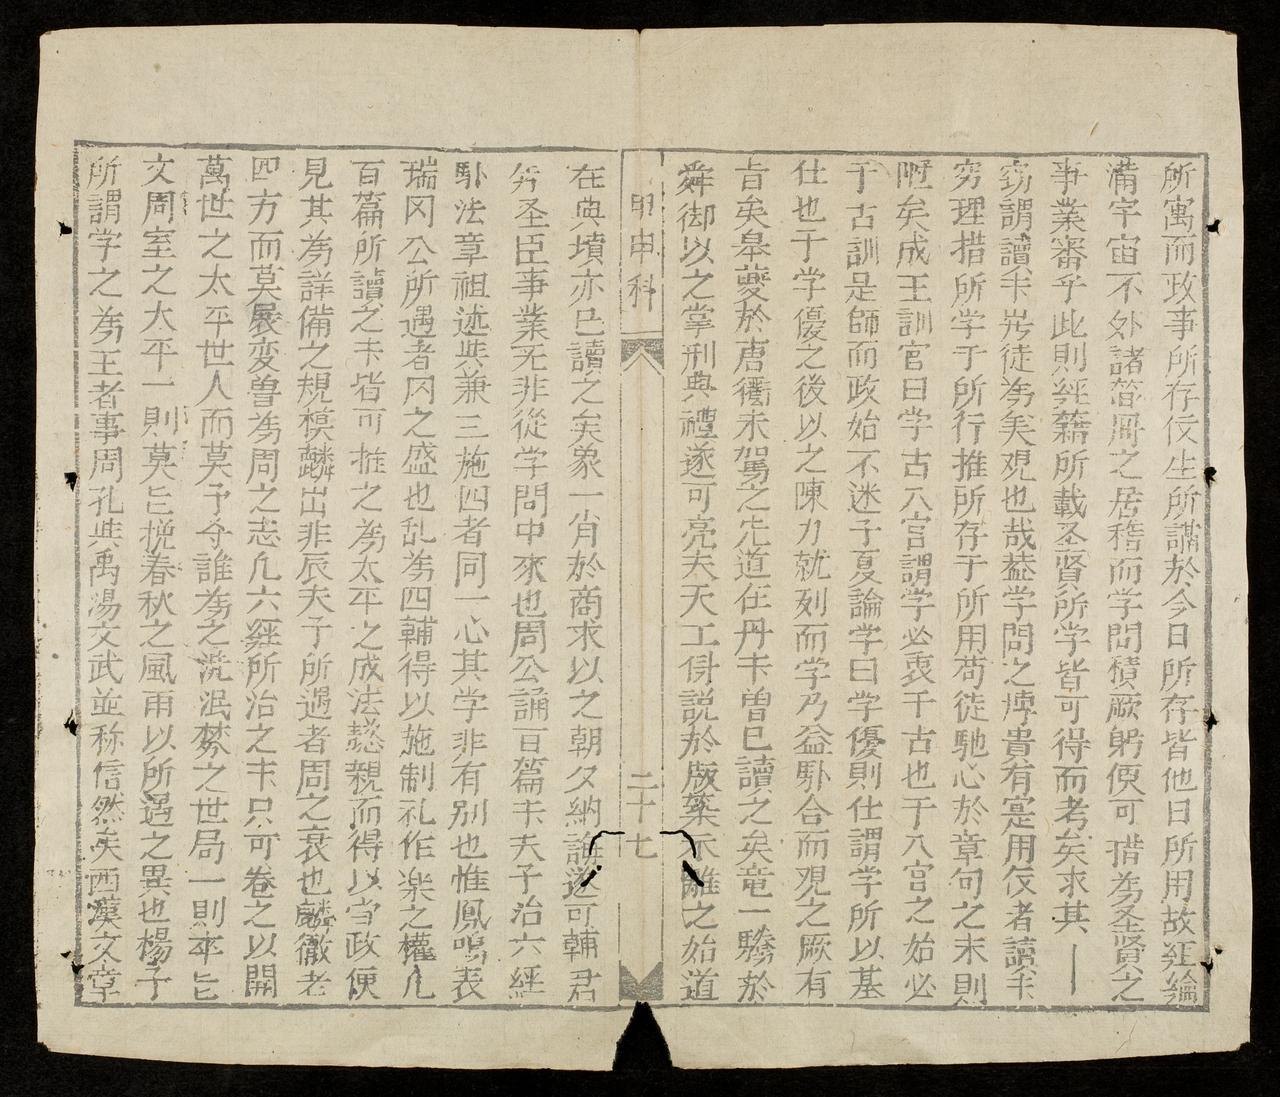 所寓而政事所存伋生所講於今日所存皆他日所用故經綸
滿宇宙不外諸簡冊之居稽而学問積厥躬便可措為圣賢之
事業審乎此則經籍所載圣賢所学皆可得而考矣求其
窃謂讀未岩徒為矣观也哉盖学問之博貴有寔用伋者讀未
穷理措所学于所行推所存于所用苟徒馳心於章句之末則
陋矣成王訓官曰学古入官謂学必衷千古也于入官之始必
于古訓是師而政始不迷子夏論学曰学優則仕謂学所以基
仕也于学優之後以之陳力就列而学乃益卧合而观之厥有
旨矣皋夔於唐衢未駕之先道在丹未曽已讀之矣竜一驤於
舜御以之掌刑典禮遂可亮夫天工傅説於版築不離之始道
甲申科
二十七
在典墳亦已讀之矣象一肖於商求以之朝夕納誨遂可輔君
為圣臣事業无非從学問中來也周公誦百篇未夫子治六經
卧法章祖述與兼三施四者同一心其学非有别也惟鳳鳴表
瑞冈公所遇者冈之盛也乱為四輔得以施制礼作楽之權凡
百篇所讀之未皆可推之為太平之成法懿親而得以当政便
見其為詳備之規模麟出非辰夫子所遇者周之衰也麟徹老
四方而莫展变曽為周之志凡六經所治之未只可卷之以開
萬世之太平世人而莫予夺誰為之洗泯棼之世局一則卒㠯
文周室之大平一則莫㠯挽春秋之風雨以所遇之異也楊子
所謂学之為王者事周孔與禹湯文武並称信然矣西漢文章